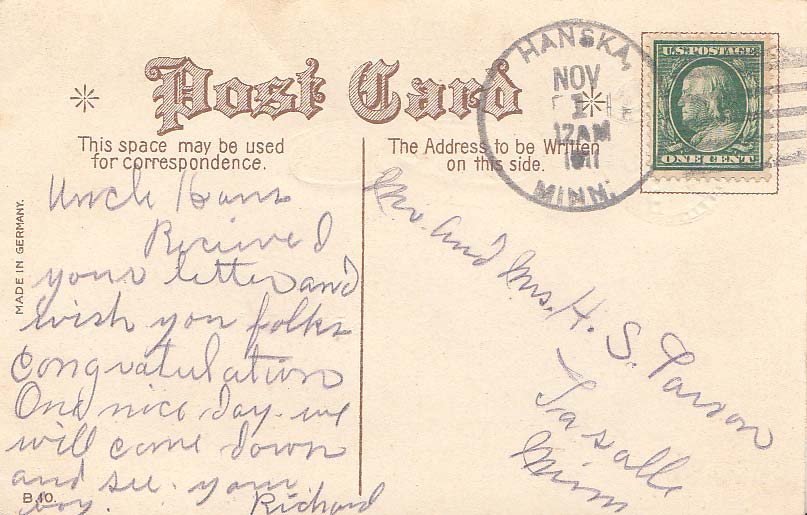 Post Card
This space may be used
for correspondence.
The Address to be Written
on this side.
HANSKA,
NOV
1
12AM
1911
MINN.
U.S. POSTAGE
ONE CENT
MADE IN GERMANY.
Uncle Hans
Recieved
your letter and
wish you folks
congratulation
One nice day we
will come down
and see your
boy. Richard
B.10.
Mr. and Mrs. H. S. Larson
Lasalle
Minn